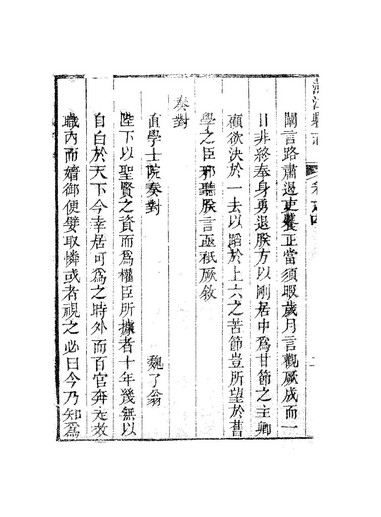 蒲江縣志
卷
闢言路肅邊吏
正當須暇歲月言觀厥成而一
日非終奉身勇退朕方以剛居中為甘節之主卿
顧欲決於一去以蹈於上六之苦節豈所望於舊
學之臣邪聽朕言亟祇厥敘
奏對
直學士院奏對
魏了翁
陛下以聖賢之資而為權臣所據者十年幾無以
自白於天下今幸居可為之時外而百官奔走效
職內而嬪御便嬖取憐或者視之必曰今乃知為